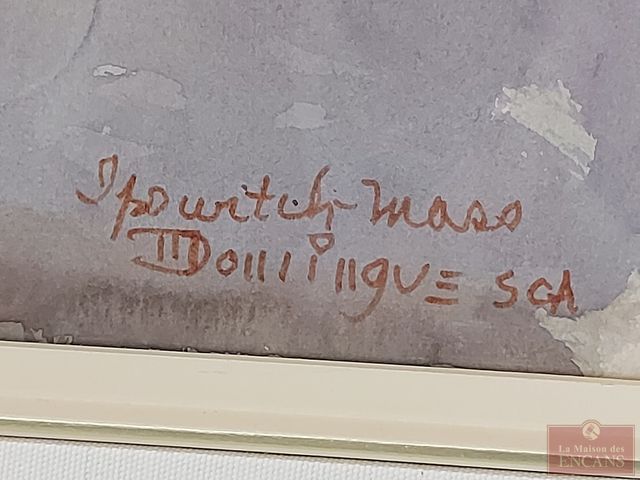 Ipswitch Mass
Domingue SCA
La Maison des
ENCANS